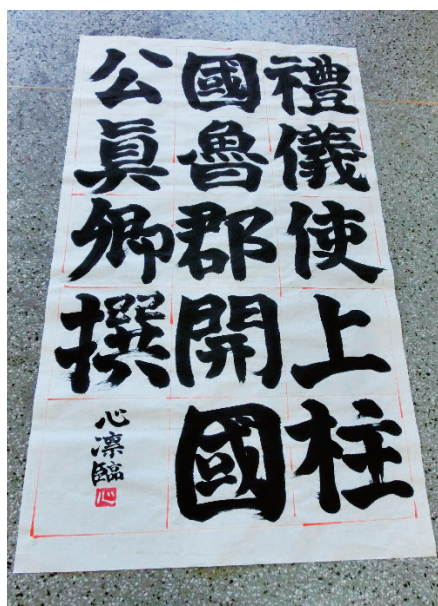 禮儀使上柱
國魯郡開國
公真卿撰
心凛臨
心